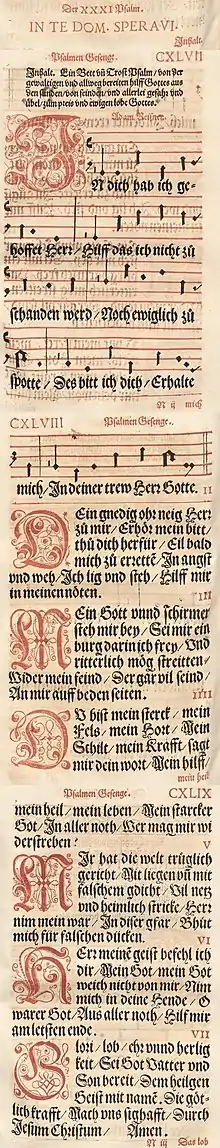 Der XXXI Psalm.
IN TE DOM. SPERAVI.
Inhalt.
Psalmen Gesenge. CXLVII
Inhalt. Ein Bett vn̄ Trost Psalm / von der
gewaltigen vnd allweg bereiten hilff Gottes
den sünden / von feinden / vnd allerley gefahr vnd
übel / zum preis vnd ewigen lobe Gottes.
Adam Reisner.
IN dich hab ich ge-
hoffet Herr / Hilff das ich nicht zů
schanden werd / Noch ewiglich zů
spotte / Des bitt ich dich / Erhalte
N ij mich
CXLVIII Psalmen Gesenge.
mich / In deiner trew Herr Gotte. II
DEin gnedig ohr neig Herr
zů mir / Erhör mein bitt /
thů dich herfür / Eil bald
mich zů errettē In angst
vnd weh / Ich lig vnd steh / Hilff mir
in meinen nöten. III
MEin Gott vnnd schirmer
steh mir bey / Sei mir ein
burg darin ich frey / Vnd
ritterlich mög streitten /
Wider mein feind / Der gar vil seind /
An mir auff beden seiten. IIII
DU bist mein sterck / mein
Fels / mein Hort / Mein
Schilt / mein Krafft / sagt
mir dein wort / Mein hilff /
mein heil
Psalmen Gesenge. CXLIX
mein heil / mein leben / Mein starcker
Got / In aller noth / Wer mag mir wi
derstreben? V
MIr hat die welt trüglich
gericht / Mit liegen vn̄ mit
falschem gdicht / Vil netz
vnd heimlich stricke / Herr
nim mein war / In diser gfar / Bhüt
mich für falschen dücken. VI
HErr meinē geist befehl ich
dir / Mein Got mein Got
weich nicht von mir / Nim
mich in deine Hende / O
warer Got / Aus aller noth / Hilf mir
am letsten ende. VII
GLori / lob / ehr vnnd herlig
keit / Sei Got Vatter vnd
Son bereit / Dem heilgen
Geist mit namē. Die göt-
lich krafft / Mach vns sighafft / Durch
Jesum Christum / Amen.
N iij Das lob